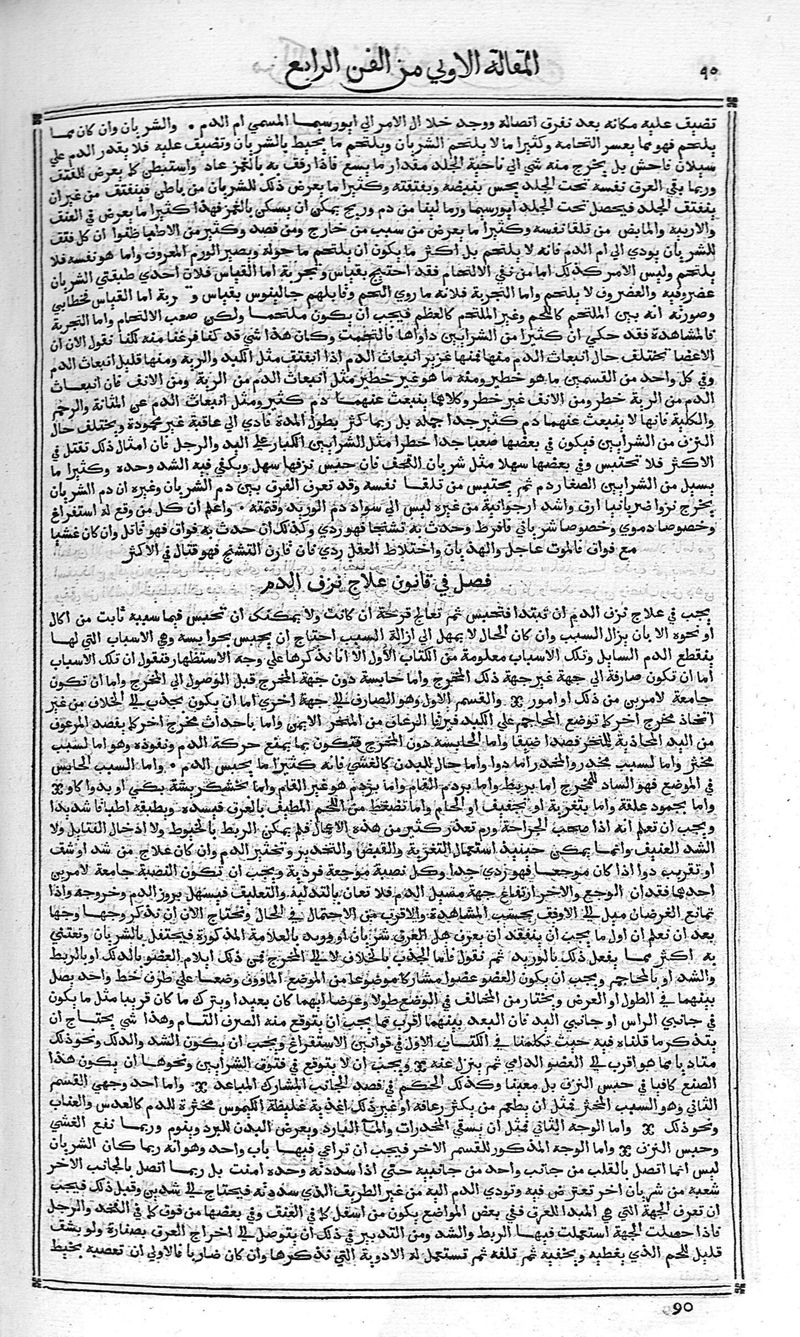 ٩٠ المقالة الاولي من الفن الرابع
تضيف عليه مكانه بعد تفرق اتصاله ووجد خلا ال الامر الي ابورسيما المسمي ام الدم • والشريان وان كان مما
يلتحم فهو مما يعسر التحامه وكثيرا ما لا يلتحم الشريان ويلتحم ما يحيط بالشريان وتضيف عليه فلا يقدر الدم علي
سيلان فاحش بل يخرج منه شي الي ناحية الجلد مقدار ما يسع فاذا رفف به بالغمز عاد واستبطن كما يعرض للفتف
وربما بقي العرق نفسه تحت الجلد يحس بنبضه وبفتقته وكثيرا ما يعرض ذلك للشريان من باطن فينفتف من غير ان
ينفتف الجلد فيحصل تحت الجلد ابورسيما ورما لينا من دم وريح يمكن ان يسكن بالغمز فهذا كثيرا ما يعرض في العنف
والاربية والمابض من تلقا نفسه وكثيرا ما يعرض من سبب من خارج ومن فصد وكثير من الاطبا ظنوا ان كل فتف
للشريان يودي الي ام الدم فانه لا يلتحم بل اكثر ما يكون ان يلتحم ما حوله ويصير الورم المعروف واما هو نفسه فلا
يلتحم وليس الامر كذلك اما من نفي الالتحام فقد احتج بقياس وتجربة اما القياس فلان احدي طبقتي الشريان
غضروفيه والغضروف لا يلتحم واما التجربة فلانه ما روي التحم وقابلهم جالينوس بقياس و ربة اما القياس فخطابي
وصورته انه بين الملتحم كاللحم وغير الملتحم كالعظم فيجب ان يكون ملتحما ولكن صعب الالتحام واما التجربة
فالمشاهدة فقد حكي ان كثيرا من الشرايين داواها فالتحمت وكان هذا شي قد كنا فرغنا منه لكنا نقول الان ان
الاعضا تختلف حال انبعاث الدم منها فمنها غزير انبعاث الدم اذا انفتف مثل الكبد والرية ومنها قليل انبعاث الدم
وفي كل واحد من القسمين ما هو خطير ومنه ما هو غير خطير مثل انبعاث الدم من الرية ومن الانف فان انبعاث
الدم من الرية خطر ومن الانف غير خطر وكلاهما ينبعث عنهما دم كثير ومثل انبعاث الدم عن المثانة والرحم
والكلية فانها لا ينبعث عنهما دم كثير جدا جمله بل ربما كثر بطول المدة فادي الي عاقبة غير محمودة ويختلف حال
النزف من الشرايين فيكون في بعضها صعبا جدا خطرا مثل الشرايين الكبار علي اليد والرجل فان امثال ذلك تقتل في
الاكثر فلا تحتبس وفي بعضها سهلا مثل شريان القحف فان حبس نزفها سهل ويكفي فيه الشد وحده وكثيرا ما
يسيل من الشرايين الصغار دم ثم يحتبس من تلقا نفسه وقد تعرف الفرق بين دم الشريان وغيره ان دم الشريان
يخرج نزوا ضربانيا ارق واشد ارجوانية من غيره ليس الي سواد دم الوريد وقتمته • واعلم ان كل من وقع له استفراغ
وخصوصا دموي وخصوصا شرياني فافرط وحدث به تشنجا فهو ردي وكذلك ان حدث به فواق فهو قاتل وان كان غشيا
مع فواق فالموت عاجل والهذيان واختلاط العقل ردي فان قارن التشنج فهو قتال في الاكثر
فصل في قانون علاج نزف الدم
يجب في علاج نزف الدم ان تبتدا فتحبس ثم تعالج قرحة ان كانت ولا يمكنك ان تحبس فيما سببه ثابت من اكال
او نحوه الا بان يزال السبب وان كان الحال لا يمهل الي ازالة السبب احتاج ان يحبس بحوابسه وهي الاسباب التي لها
ينقطع الدم السايل وتلك الاسباب معلومة من الكتاب الاول الا انا نذكرها علي وجه الاستظهار فنقول ان تلك الاسباب
اما ان تكون صارفة الي جهة غير جهة ذلك المخرج واما حابسة دون جهة المخرج قبل الوصول الي المخرج واما ان تكون
جامعة لامرين من ذلك او امور ※ والقسم الاول وهو الصارف الي جهة اخري اما ان يكون بجذب الي الخلاف من غير
اتخاذ مخرج اخر كما توضع المحاجم علي الكبد فيرقا الرعاف من المنخر الايمن واما باحداث مخرج اخر كما يفصد المرعوف
من اليد المحاذية للمنخر فصدا ضيقا واما الحابسة دون المخرج فتكون بما يمنع حركة الدم ونفوذه وهو اما لسبب
مخثر واما لسبب مخدر والمخدر اما دوا واما حال للبدن كالغشي فانه كثيرا ما يحبس الدم • واما السبب الحابس
في الموضع فهو الساد للمخرج اما بربط واما بردم القام واما بردم هو غير القام واما بخشكريشة بكي او بدوا كاو ※
واما بجمود علقة واما بتغرية او تجفيف او الحام واما تضغط من اللحم المطيف بالعرق فيسده وبطبقه اطباقا شديدا
ويجب ان تعلم انه اذا صحب الجراحة ورم تعذر كثير من هذه الاعمال فلم يمكن الربط بالخيوط ولا ادخال الفتايل ولا
الشد العنيف وانما يمكن حينيذ استعمال التغرية والقبض والتخدير وتخثير الدم وان كان علاج من شد او شف
او تقريب دوا اذا كان موجعا فهو ردي جدا وكل نصبة موجعة فردية ويجب ان تكون النصبة جامعة لامرين
احدهما فقدان الوجع والاخر ارتفاع جهة مسيل الدم فلا تعان بالتدلية والتعليف فيسهل بروز الدم وخروجه واذا
تمانع الغرضان ميل الي الاوفق بحسب المشاهدة والاقرب من الاحتمال في الحال ونحتاج الان ان نذكر وجها وجها
بعد ان نعلم ان اول ما يجب ان يتفقد ان يعرف هل العرق شريان او وريد بالعلامة المذكورة فيحتفل بالشريان وتعتني
به اكثر مما يفعل ذلك بالوريد ثم نقول فاما الجذب بالخلاف لا الي المخرج فمن ذلك ايلام العضو بالدلك او بالربط
والشد او بالمحاجم ويجب ان يكون العضو عضوا مشاركا موضوعا من الموضع الماووف وضعا علي طرف خط واحد يصل
بينهما في الطول او العرض ويختار من المخالف في الوضع طولا وعرضا ايهما كان بعيدا ويترك ما كان قريبا مثل ما يكون
في جانبي الراس او جانبي اليد فان البعد بينهما اقرب مما يجب ان يتوقع منه الصرف التام وهذا شي يحتاج ان
يتذكر ما قلناه فيه حيث تكلمنا في الكتاب الاول في قوانين الاستفراغ ويجب ان يكون الشد والدلك ونحو ذلك
متاديا مما هو اقرب الي العضو الدامي ثم ينزل عنه ※ ويجب ان لا يتوقع في فتوق الشرايين ونحوها ان يكون هذا
الصنع كافيا في حبس النزف بل معينا وكذلك الحكم في فصد الجانب المشارك المباعد ※ واما احد وجهي القسم
الثاني وهو السبب المخثر فمثل ان يطعم من يكثر رعافه او غير ذلك اغذية غليظة الكيموس مخثرة للدم كالعدس والعناب
ونحو ذلك ※ واما الوجه الثاني فمثل ان يسقي المخدرات والما البارد ويعرض البدن للبرد ويقوم وربما نفع الغشي
وحبس النزف ※ واما الوجه المذكور للقسم الاخر فيجب ان تراعي فيها باب واحد وهو انه ربما كان الشريان
ليس انما اتصل بالقلب من جانب واحد من جانبيه حتي اذا سددته وحده امنت بل ربما اتصل بالجانب الاخر
شعبة من شريان اخر تعترض فيه وتودي الدم اليه من غير الطريف الذي سددته فيحتاج الي شدين وقبل ذلك فيجب
ان تعرف الجهة التي هي المبدا للعرق ففي بعض المواضع يكون من اسفل كما في العنف وفي بعضها من فوق كما في الفخذ والرجل
فاذا حصلت الجهة استعملت فيها الربط والشد ومن التدبير في ذلك ان يتوصل الي اخراج العرق بصنارة ولو بشف
قليل للحم الذي يغطيه ويخفيه ثم تلفه ثم تستعمل له الادوية التي نذكرها وان كان ضاربا فالاولي ان تعصبه بخيط
90